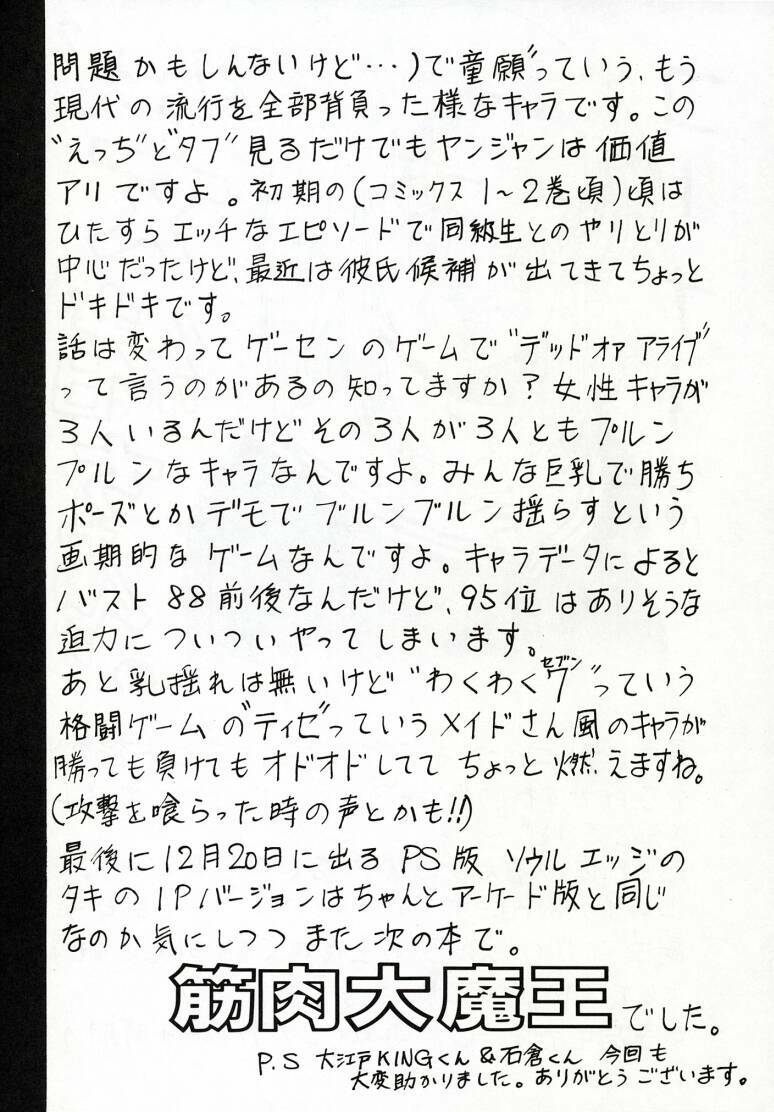 問題かもしんないけど…)で童願”っていう、もう
現代の流行を全部背負った様なキャラです。この
“えっち”と“タブ”見るだけでもヤンジャンは価値
アリですよ。初期の(コミックス1～2巻頃)頃は
ひたすらエッチなエピソードで同級生とのやりとりが
中心だったけど、最近は彼氏候補が出てきてちょっと
ドキドキです。
話は変わってゲーセンのゲームで“デッドオァアライブ”
って言うのがあるの知ってますか？女性キャラが
3人いるんだけどその3人が3人ともプルン
プルンなキャラなんですよ。みんな巨乳で勝ち
ポーズとかデモでブルンブルン揺らすという
画期的なゲームなんですよ。キャラデータによると
バスト88前後なんだけど、95位はありそうな
迫力についついやってしまいます。
あと乳揺れは無いけど“わくわく7”っていう
セブン
格闘ゲームの“ティゼ”っていうメイドさん風のキャラが
勝っても負けてもオドオドしててちょっと燃えますね。
(攻撃を喰らった時の声とかも!!)
最後に12月20日に出るPS版ソウルエッジの
タキの1Pバージョンはちゃんとアーケード版と同じ
なのか気にしつつまた次の本で。
筋肉大魔王でした。
P.S 大江戸KINGくん&石倉くん 今回も
大変助かりました。ありがとうございます。